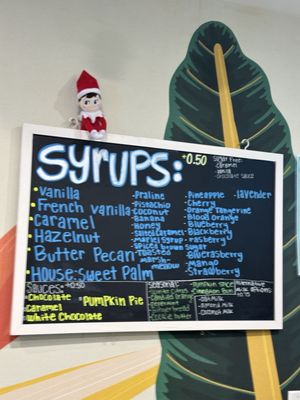 SYRUPS: +0.50
Sugar Free:
-caramel
-vanilla
-chocolate sauce
Vanilla
French vanilla
Caramel
Hazelnut
Butter Pecan
House: Sweet Palm
-Praline
-Pistachio
-Coconut
-Banana
-Honey
-Salted Caramel
-Maple Syrup
-Spiced brown Sugar
-Toasted
marsh-
mellow
-Pineapple
-Cherry
-Orange Tangerine
-Blood Orange
-Blueberry
-Blackberry
-rasberry
-Bluerasberry
-Mango
-Strawberry
-lavender
Sauces: +0.50
-Chocolate
-Caramel
-White Chocolate
-Pumpkin Pie
Seasonal:
-Pumpkin Spice
-Cinnamon Bun
Alternative
Milk Options:
-Oat Milk
-Almond Milk
-Coconut Milk